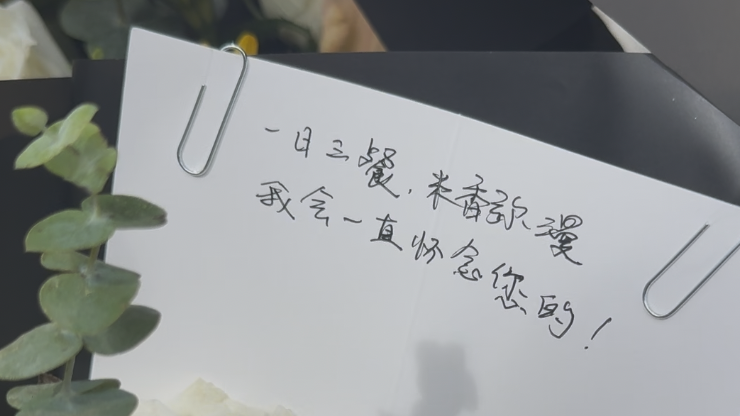 一日三餐,米香弥漫
我会一直怀念您的!